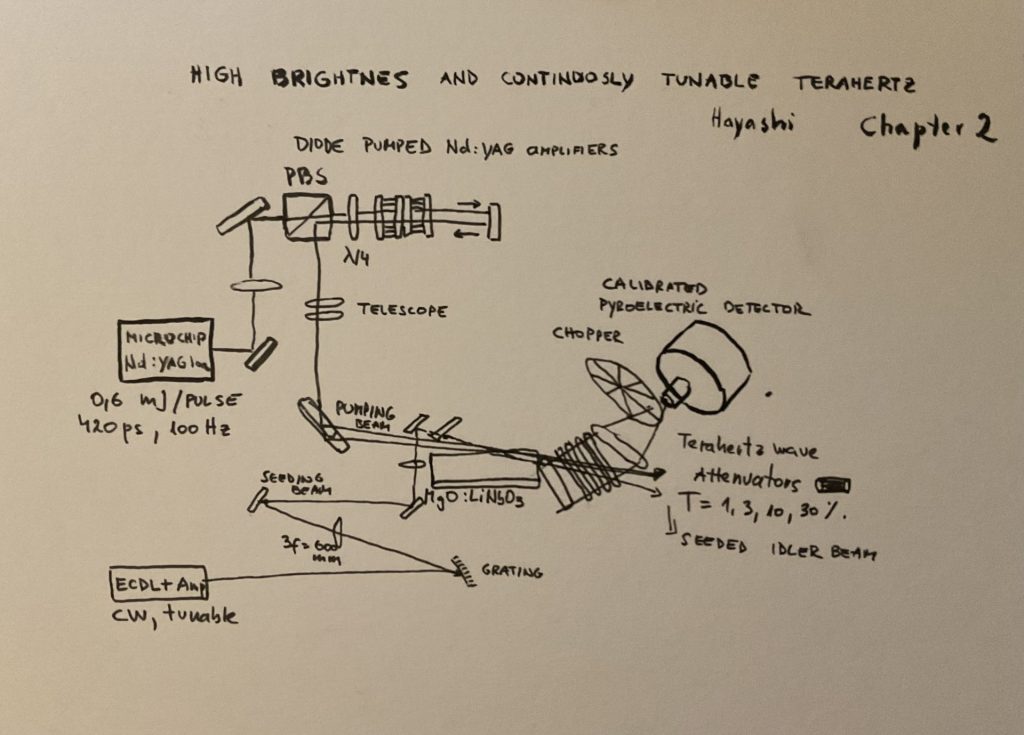 HIGH BRIGHTNES AND CONTINUOSLY TUNABLE TERAHERTZ
Hayashi Chapter 2
DIODE PUMPED Nd:YAG AMPLIFIERS
PBS
λ/4
TELESCOPE
CALIBRATED
PYROELECTRIC DETECTOR
CHOPPER
MICROCHIP
Nd:YAG
0,6 mJ/PULSE
420 ps, 100 Hz
PUMPING
BEAM
Terahertz wave
Attenuators
T = 1, 3, 10, 30 %.
SEEDED IDLER BEAM
SEEDING
BEAM
MgO:LiNbO3
3f = 600
mm
GRATING
ECDL + Amp
CW, tunable